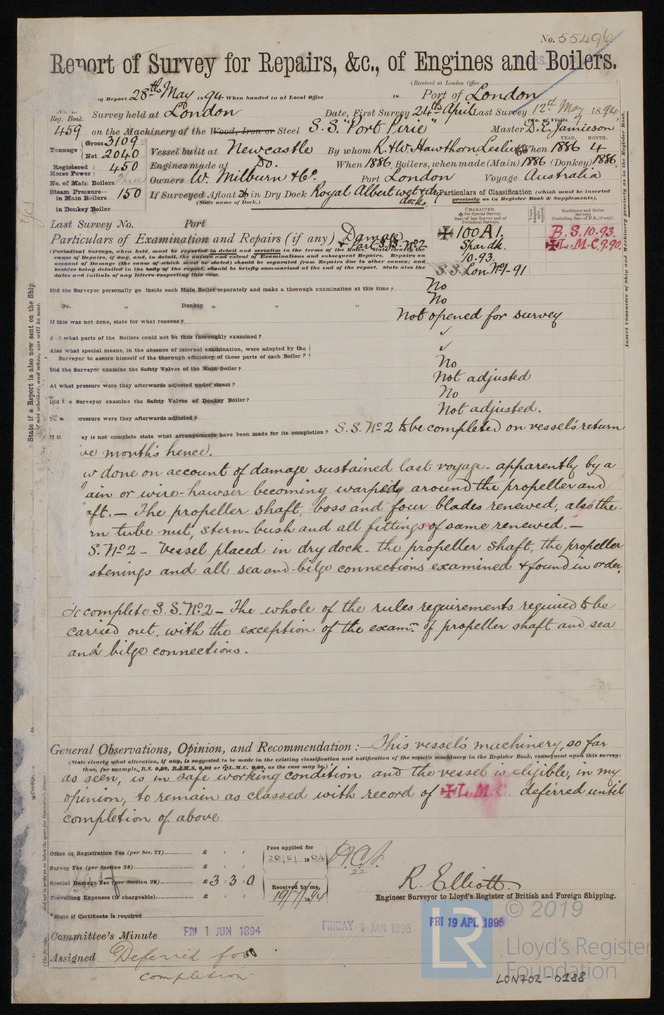 No. 55496
Report of Survey for Repairs, &c., of Engines and Boilers.
(Received at London Office
of Report 28th May 1894 When handed in at Local Office Port of London
Reg. Book. Survey held at London Date, First Survey 24th April Last Survey 12th May 1894
459 on the Machinery of the Wood, Iron or Steel S.S. "Port Pirie" Master D. E. Jamieson
Tonnage Gross 3109 Net 2040 Vessel built at Newcastle By whom R. & W. Hawthorn Leslie & When 1886 4
Registered Horse Power 450 Engines made at Do. When 1886 Boilers, when made (Main) 1886 (Donkey) 1886
No. of Main Boilers Owners W. Milburn & Co. Port London Voyage Australia
Steam Pressure in Main Boilers 150 If Surveyed Afloat & in Dry Dock Royal Albert wet & dry docks
(State name of Dock.)
in Donkey Boiler
Particulars of Classification (which must be inserted precisely as in Register Book & Supplements).
Last Survey No. Port
Particulars of Examination and Repairs (if any) Damage & Part S.S. No 2
✠100A1.
10.93.
S.S. Lon No 1-91
B.S. 10.93.
✠L.M.C. 9.90.
Did the Surveyor personally go inside each Main Boiler separately and make a thorough examination at this time? No
Do. " Donkey " " " No
If this was not done, state for what reasons? Not opened for survey
And what parts of the Boilers could not be thus thoroughly examined? ✓
Also what special means, in the absence of internal examination, were adopted by the Surveyor to assure himself of the thorough efficiency of those parts of each Boiler? ✓
Did the Surveyor examine the Safety Valves of the Main Boiler? No
At what pressure were they afterwards adjusted under steam? Not adjusted
Did the Surveyor examine the Safety Valves of Donkey Boiler? No
pressure were they afterwards adjusted? Not adjusted.
is not complete state what arrangements have been made for its completion? S.S. No 2 to be completed on vessel's return
months hence.
done on account of damage sustained last voyage - apparently by a
ain or wire-hawser becoming warped around the propeller and
aft. - The propeller shaft, boss and four blades renewed, also the
rn tube nut, stern-bush and all fittings of same renewed. -
S. No 2 - Vessel placed in dry dock - the propeller shaft, the propeller
stenings and all sea and bilge connections examined & found in order.
To complete S.S. No 2 - The whole of the rules requirements required to be
carried out, with the exception of the examn. of propeller shaft and sea
and bilge connections.
General Observations, Opinion, and Recommendation :- This vessel's machinery, so far
(State clearly what alteration, if any, is suggested to be made in the existing classification and notification of the vessel's machinery in the Register Book, consequent upon this survey;
as seen, is in safe working condition and the vessel is eligible, in my
opinion, to remain as classed with record of ✠L.M.C. deferred until
completion of above
Office or Registration Fee (per Sec. 27) £
Survey Fee (per Section 28) £
Special Damage Fee (per Section 28) £ 3 : 3 : 0
Travelling Expenses (if chargeable) £
Fees applied for
Received by me,
R. Elliott.
Engineer Surveyor to Lloyd's Register of British and Foreign Shipping.
State if Certificate is required
Committee's Minute FRI 1 JUN 1894
FRI 19 APL 1895
Assigned Deferred for
completion
State if a Report is also now sent on the Ship
LR
© 2019
Lloyd's Register
Foundation
LON702-0188